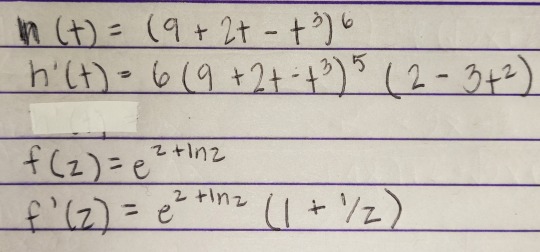 h(t) = (9 + 2t - t³)⁶
h'(t) = 6(9 + 2t - t³)⁵ (2 - 3t²)
f(z) = e^{z + ln z}
f'(z) = e^{z + ln z} (1 + 1/z)